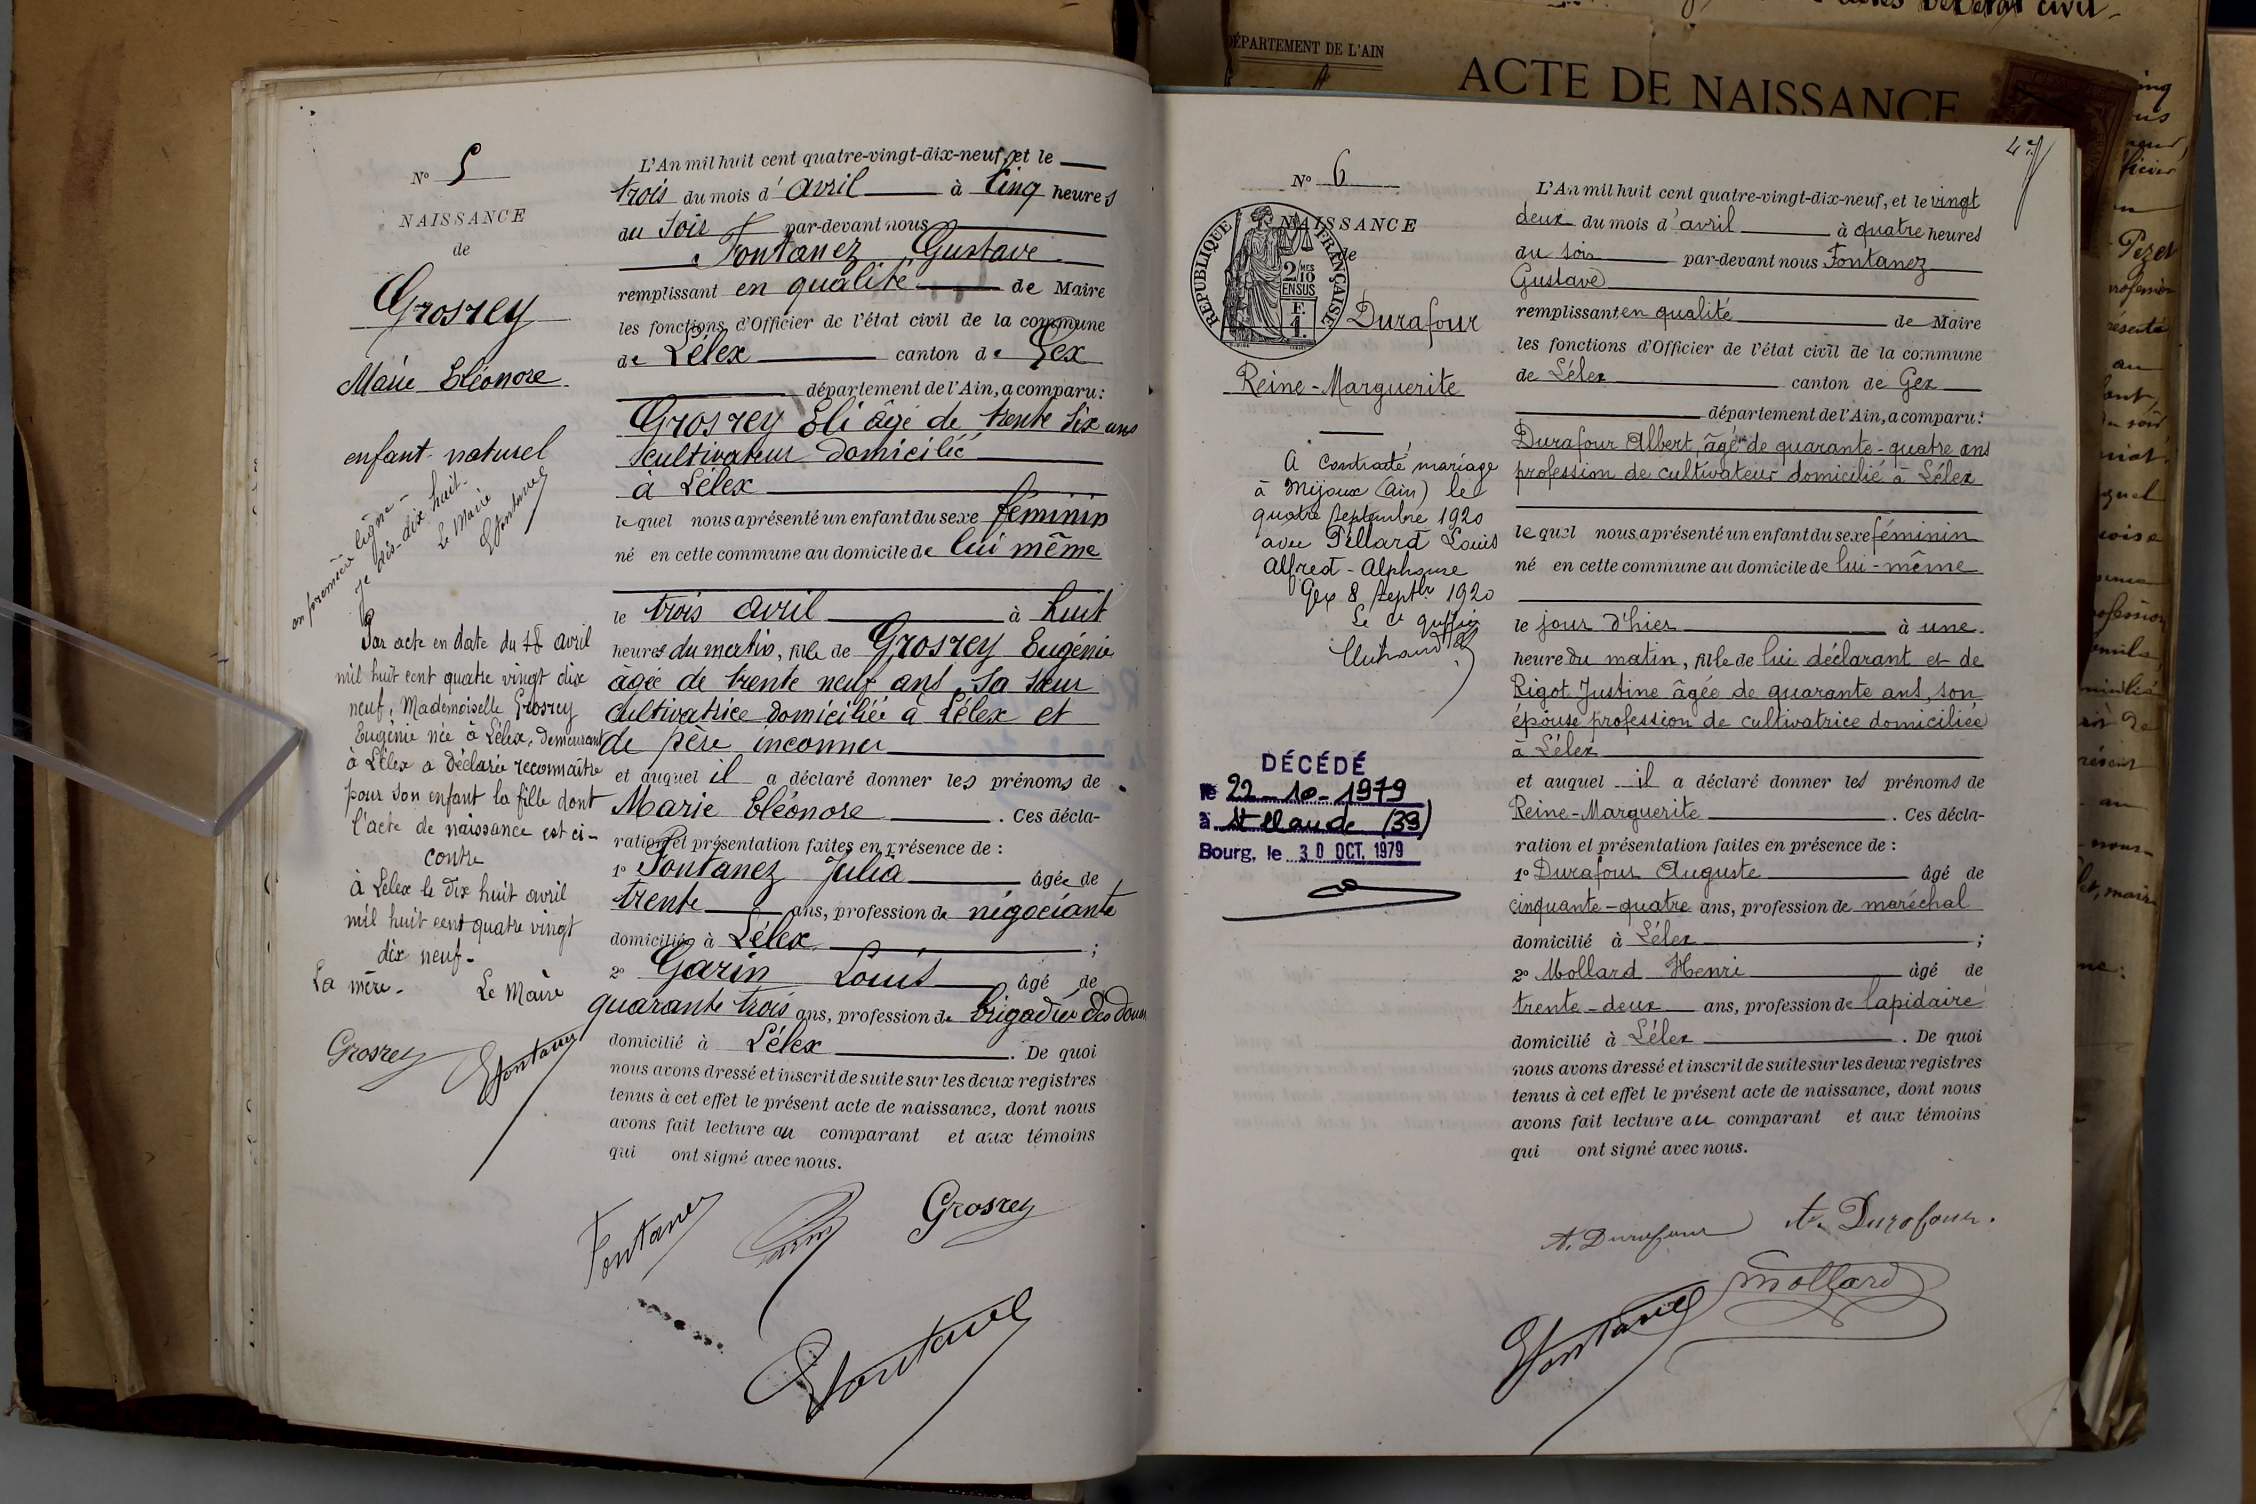 Nº 5
NAISSANCE
de
Grosrey
Marie Eléonore
enfant naturel
en première ligne
je dis dix huit
Le Maire
GFontanez
Par acte en date du 18 avril
mil huit cent quatre vingt dix
neuf, Mademoiselle Grosrey
Eugénie née à Lélex, demeurant
à Lélex a déclaré reconnaître
pour son enfant la fille dont
l'acte de naissance est ci-
contre
à Lélex le dix huit avril
mil huit cent quatre vingt
dix neuf.
La mère. Le Maire
Grosrey GFontanez
L'An mil huit cent quatre-vingt-dix-neuf, et le
trois du mois d'avril à cinq heures
du soir par-devant nous
Fontanez Gustave
remplissant en qualité de Maire
les fonctions d'Officier de l'état civil de la commune
de Lélex canton de Gex
département de l'Ain, a comparu:
Grosrey Eli âgé de trente six ans
cultivateur domicilié
à Lélex
lequel nous a présenté un enfant du sexe féminin
né en cette commune au domicile de lui même
le trois avril à huit
heures du matin, fille de Grosrey Eugénie
âgée de trente neuf ans, sa sœur
cultivatrice domiciliée à Lélex et
de père inconnu
et auquel il a déclaré donner les prénoms de
Marie Eléonore. Ces décla-
ration et présentation faites en présence de :
1º Fontanez Julia âgée de
trente ans, profession de négociante
domiciliée à Lélex ;
2º Garin Louis âgé de
quarante trois ans, profession de brigadier des douan
domicilié à Lélex. De quoi
nous avons dressé et inscrit de suite sur les deux registres
tenus à cet effet le présent acte de naissance, dont nous
avons fait lecture au comparant et aux témoins
qui ont signé avec nous.
Fontanez Garin Grosrey
GFontanez
DÉPARTEMENT DE L'AIN
ACTE DE NAISSANCE
Nº 6
NAISSANCE
de
RÉPUBLIQUE FRANÇAISE
2/10 MES
EN SUS
F.
1.
Durafour
Reine-Marguerite
A contracté mariage
à Mijoux (Ain) le
quatre septembre 1920
avec Pillard Louis
Alfred-Alphonse
Gex 8 Septbre 1920
DÉCÉDÉ
le 22-10-1979
à St Claude (39)
Bourg, le 30 OCT. 1979
L'An mil huit cent quatre-vingt-dix-neuf, et le vingt
deux du mois d'avril à quatre heures
du soir par-devant nous Fontanez
Gustave
remplissant en qualité de Maire
les fonctions d'Officier de l'état civil de la commune
de Lélex canton de Gex
département de l'Ain, a comparu:
Durafour Albert, âgé de quarante-quatre ans
profession de cultivateur domicilié à Lélex
lequel nous a présenté un enfant du sexe féminin
né en cette commune au domicile de lui-même
le jour d'hier à une
heure du matin, fille de lui déclarant et de
Rigot Justine âgée de quarante ans, son
épouse profession de cultivatrice domiciliée
à Lélex
et auquel il a déclaré donner les prénoms de
Reine-Marguerite. Ces décla-
ration et présentation faites en présence de :
1º Durafour Auguste âgé de
cinquante-quatre ans, profession de maréchal
domicilié à Lélex ;
2º Mollard Henri âgé de
trente-deux ans, profession de lapidaire
domicilié à Lélex. De quoi
nous avons dressé et inscrit de suite sur les deux registres
tenus à cet effet le présent acte de naissance, dont nous
avons fait lecture au comparant et aux témoins
qui ont signé avec nous.
A. Durafour A. Durafour.
Mollard
GFontanez